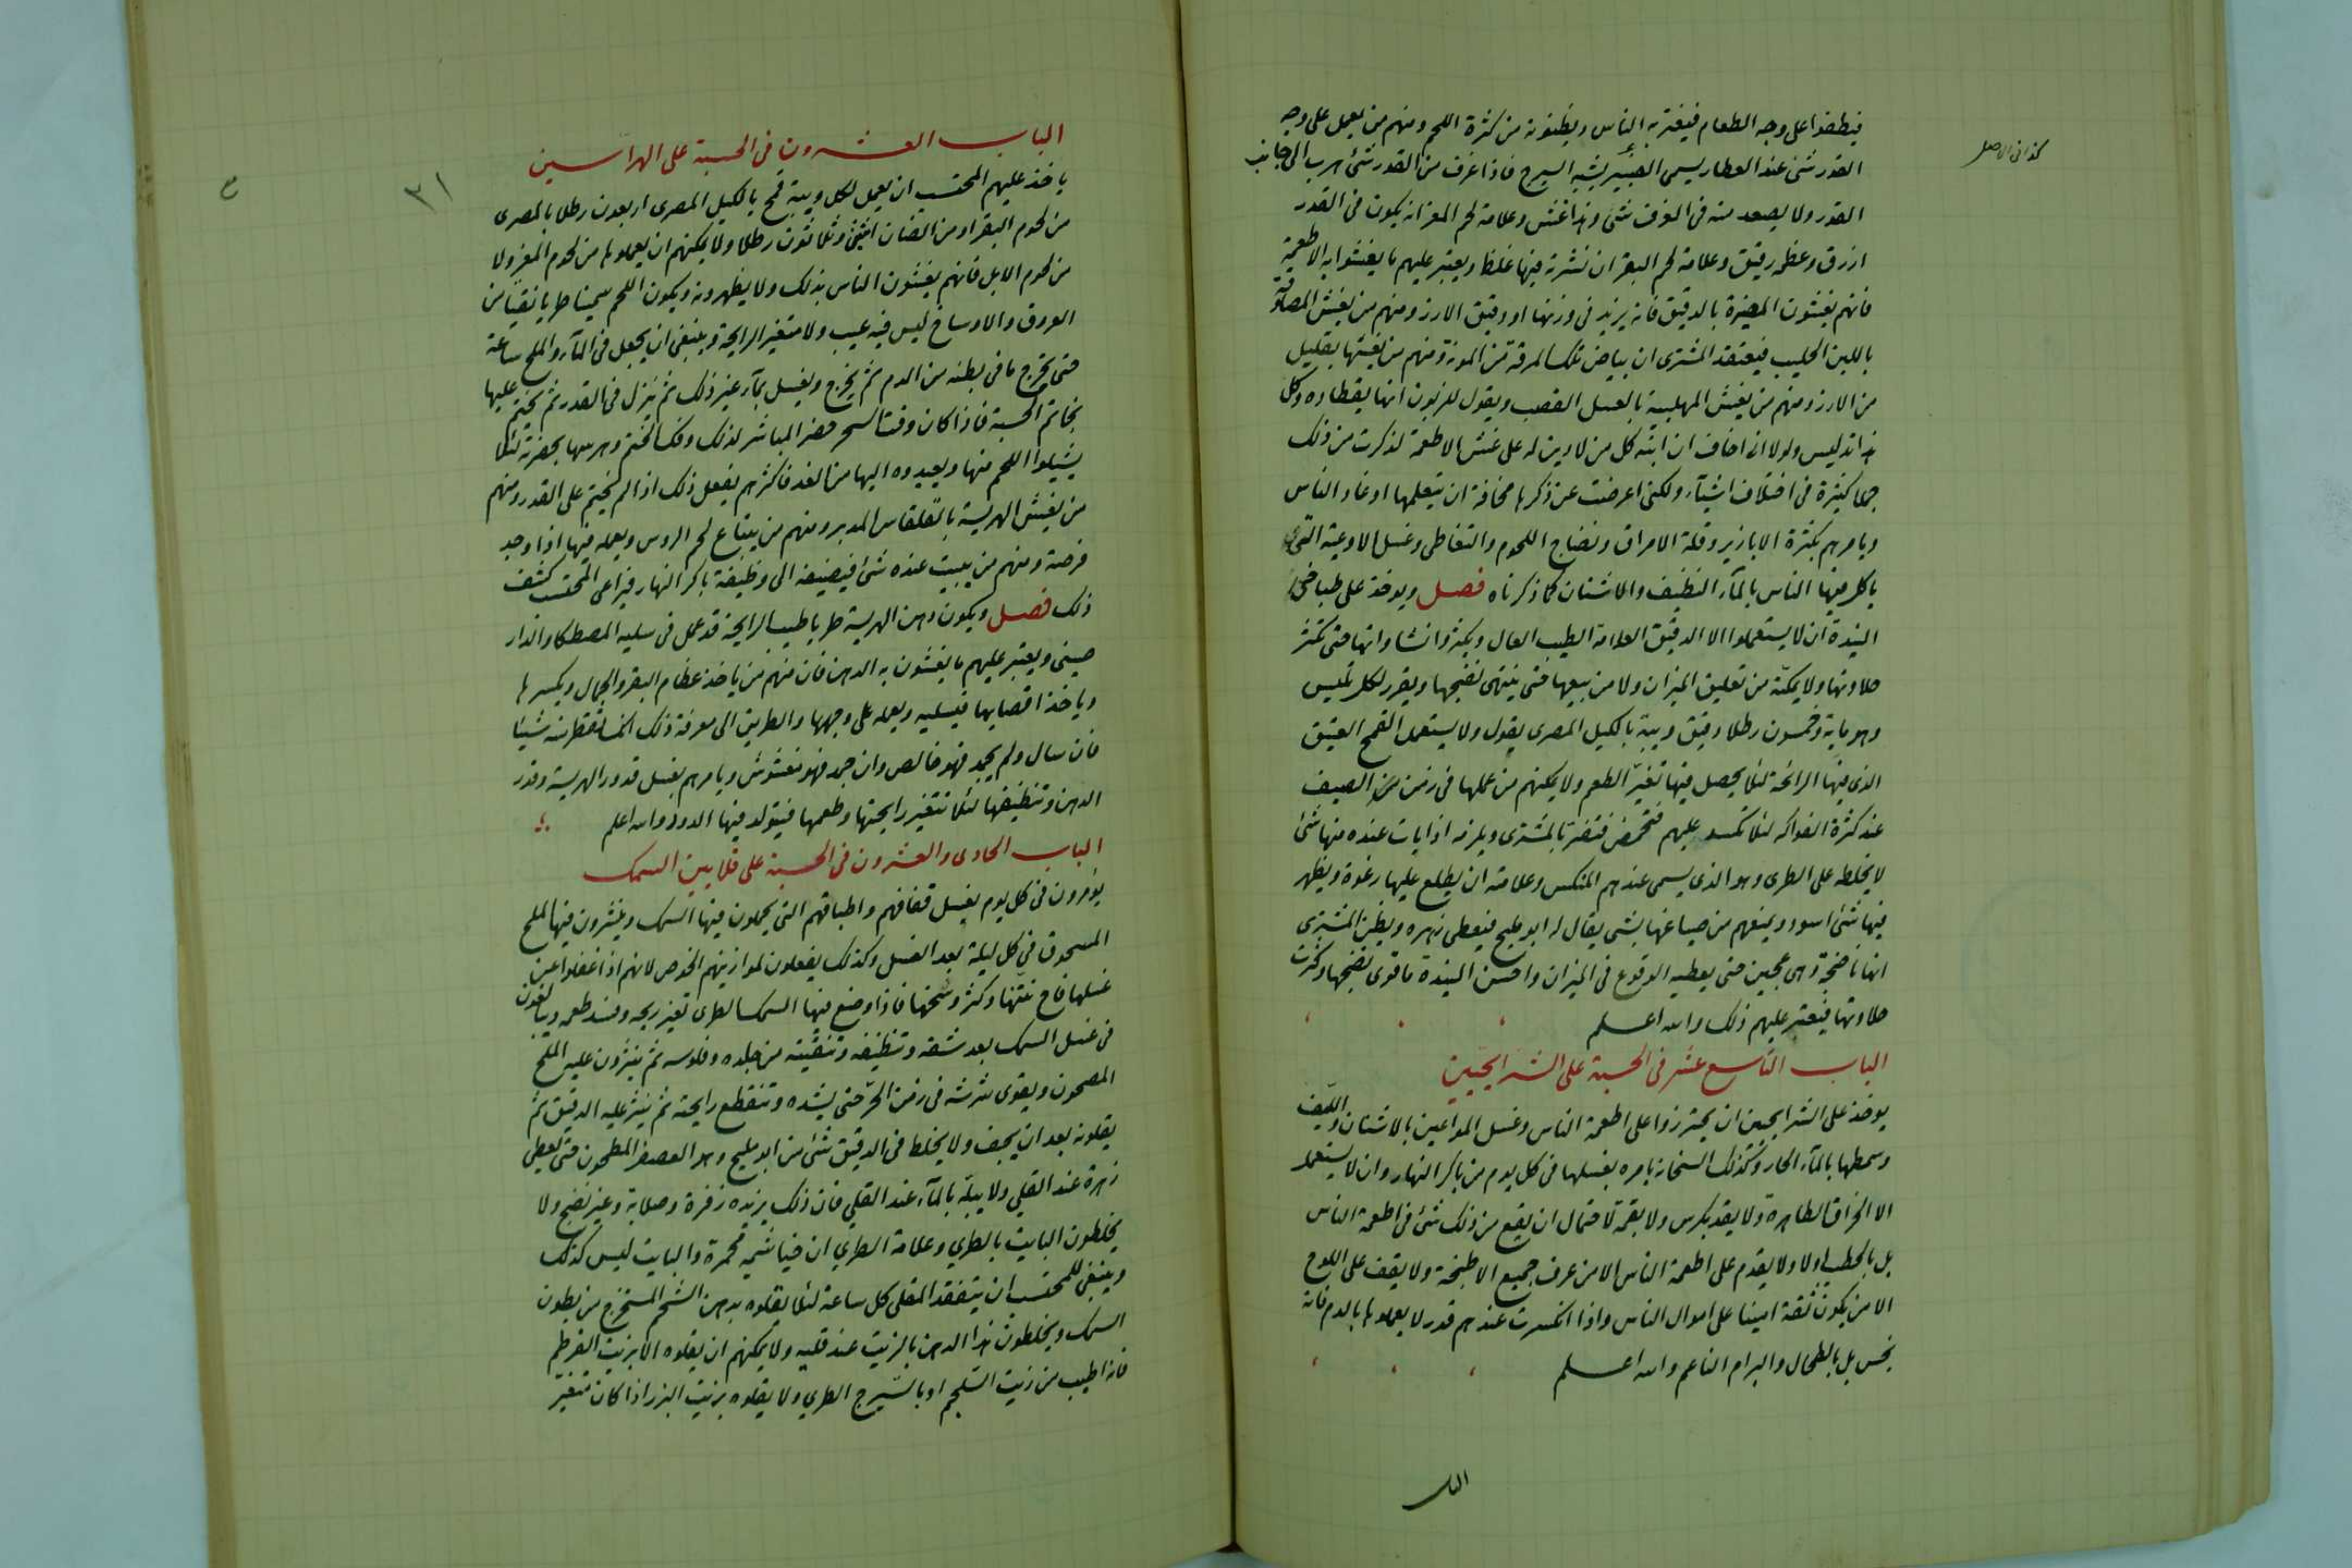 كذا فى الاصل
فيطفوا على وجه الطعام فيغتر به الناس ويظنونه من كثرة اللحم ومنهم من يعمل على وجه
القدر شئ عند العطار يسمى العنبر يشبه السيرج فاذا غرف من القدر شئ هرب الى جانب
القدر ولا يصعد منه فى الغرف شئ وهذا غش وعلامة لحم المعز انه يكون فى القدر
ازرق وعظمه رقيق وعلامة لحم البقر ان نشرته فيها غلظ ويعتبر عليهم ما يغشوا به الاطعمة
فانهم يغشون المضيرة بالدقيق فانه يزيد فى وزنها او دقيق الارز ومنهم من يغش
باللبن الحليب فيعتقد المشترى ان بياض تلك المرقة من الموزة ومنهم من يغشها بقليل
من الارز ومنهم من يغش المهلبية بالعسل القصب ويقول للزبون انها بقطاره وكل
هذا تدليس ولولا انى اخاف ان انبه كل من لا دين له على غش الاطعمة لذكرت من ذلك
جملا كثيرة فى اختلاف اشيآء ولكنى اعرضت عن ذكرها مخافة ان يتعلمها اوغاد الناس
ويامرهم بكثرة الابازير وقلة الامراق ونضاج اللحوم والتغاطى وغسل الاوعية التى
ياكل فيها الناس بالمآء النظيف والاشنان كما ذكرناه فصل ويوخذ على طباخى
اليندة ان لا يستعملوا الا الدقيق العلامة الطيب العال ويكثروا نشاواتها حتى تكثر
حلاوتها ولا يمكنه من تعليق الميزان ولا من بيعها حتى ينتهى نضجها ويقرر لكل تليس
وهو ماية وخمسون رطلا دقيق ويبة بالكيل المصرى بقول ولا يستعمل القمح العتيق
الذى فيها الرائحة لئلا يحصل فيها تغير الطعم ولا يمكنهم من عملها فى زمن من الصيف
عند كثرة الفواكه لئلا تكسد عليهم فتحمض فتضر بالمشترى ويلزمه اذا بات عنده منها شئ
لا يخلطه على الطرى وهو الذى يسمى عندهم المنكس وعلامته ان يطلع عليها رغوة ويظهر
فيها شئ اسود ويمنعهم من صباغها بشى يقال له ابو مليح فيعطى زهره ويظن المشترى
انها ناضجة وهى عجين حتى يعطيه الوقوع فى الميزان واحسن اليندة ما قوى نضجها وكثرت
حلاوتها فيعتبر عليهم ذلك والله اعلم
الباب التاسع عشر فى الحسبة على الشرايحيين
يوخذ على الشرايحيين ان يحترزوا على اطعمة الناس وغسل المواعين بالاشنان والليف
وسمطها بالمآء الحار وكذلك السخانة يامره بغسلها فى كل يوم من باكر النهار وان لا يستعمل
الا الخراق الطاهرة ولا يقد بكرس ولا بقمة لاحتمال ان يقع من ذلك شئ فى اطعمة الناس
بل بالحطب اولا ولا يقدم على اطعمة الناس الا من عرف جميع الاطبخة ولا يقف على اللوح
الا من يكون ثقة امينا على اموال الناس واذا انكسرت عندهم قدر لا يعملوها بالدم فانه
نجس بل بالطحال والبرام الناعم والله اعلم
الباب
٣١
الباب العشرون فى الحسبة على الهراسين
ياخذ عليهم المحتسب ان يعمل لكل ويبة قمح بالكيل المصرى اربعون رطلا بالمصرى
من لحوم البقر او من الضان اثنين وثلاثون رطلا ولا يمكنهم ان يعملوها من لحوم المعز ولا
من لحوم الابل فانهم يغشون الناس بذلك ولا يظهرونه ويكون اللحم سمينا طريا نقيا من
العروق والاوساخ ليس فيه عيب ولا متغير الرايحة وينبغى ان يجعل فى المآء والملح ساعة
حتى يخرج ما فى بطنه من الدم ثم يخرج ويغسل بمآء غير ذلك ثم ينزل فى القدر ثم يختم عليها
بخاتم الحسبة فاذا كان وقت السحر حضر المباشر لذلك وفك الختم وهرسها بحضرته لئلا
يشيلوا اللحم منها ويعيدوه اليها من الغد فاكثرهم يفعل ذلك اذا لم يختم على القدر ومنهم
من يغش الهريسة بالقلقاس المدبر ومنهم من يبتاع لحم الروس ويعمله فيها اذا وجد
فرصة ومنهم من يبيت عنده شئ فيضيفه الى وظيفة باكر النهار فيراعى المحتسب كشف
ذلك فصل ويكون دهن الهريسة طريا طيب الرايحة قد عمل فى سليه المصطكا والدار
صينى ويعتبر عليهم ما يغشون به الدهن فان منهم من ياخذ عظام البقر والجمال ويكسرها
وياخذ اقصابها فيسليه ويعمله على وجهها والطريق الى معرفة ذلك انك تقطر منه شيئا
فان سال ولم يجمد فهو خالص وان جمد فهو مغشوش ويامرهم بغسل قدور الهريسة وقدر
الدهن وتنظيفها لئلا تتغير رايحتها وطعمها فيتولد فيها الدود والله اعلم
الباب الحادى والعشرون فى الحسبة على قلايين السمك
يؤمرون فى كل يوم بغسل قفافهم واطباقهم التى يحملون فيها السمك وينثرون فيها الملح
المسحوق فى كل ليلة بعد الغسل وكذلك يفعلون لموازينهم الخوص لانهم اذا غفلوا عن
غسلها فاح نتنها وكثر وسخها فاذا وضع فيها السمك الطرى تغير ريحه وفسد طعمه ويبالغون
فى غسل السمك بعد شقه وتنظيفه وتنقيته من جلده وفلوسه ثم ينثرون عليه الملح
المصحون ويقوى شرشه فى زمن الحر حتى يشده وتنقطع رايحته ثم ينثر عليه الدقيق ثم
يقلونه بعد ان يجف ولا يخلط فى الدقيق شئ من ابو مليح وهو العصفر المطحون حتى يعطى
زهرة عند القلي ولا يبله بالمآء عند القلي فان ذلك يزيده زفرة وصلابة وغير نضج ولا
يخلطون البايت بالطري وعلامة الطري ان خياشيمه محمرة والبايت ليس كذلك
وينبغى للمحتسب ان يتفقد المقلى كل ساعة لئلا يقلوه بدهن الشحم المستخرج من بطون
السمك ويخلطون هذا الدهن بالزيت عند قليه ولا يمكنهم ان يقلوه الا بزيت القرطم
فانه اطيب من زيت السلجم او بالسيرج الطري ولا يقلوه بزيت البزر اذا كان متغير